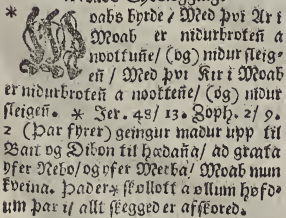 * Moabs byrde / Med þvi Ar i
Moab er nidurbroten a
noottune / (og) nidur sleig-
eñ / Med þvi Kir i Moab
er nidurbroteñ a nootteñe / (og) nidur
sleigeñ. * Jer. 48 / 13. Zoph. 2 / 9.
2 (Þar fyrer) geingur madur upp til
Bait og Dibon til hædaña / ad græata
yfer Nebo / og yfer Meeba / Moab mun
kveina. Þader * skollott a ollum hofd-
um þar i / allt skegged er afskored.